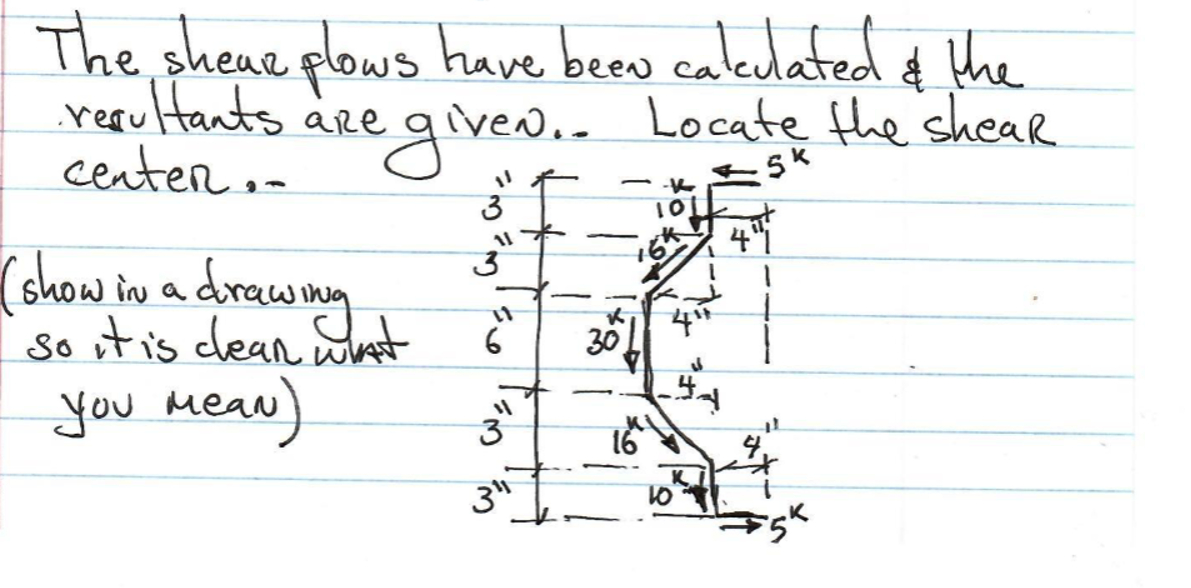 The shear flows have been calculated & the
resultants are given.. Locate the shear
center..
(show in a drawing
so it is clear what
you mean)
5K
3"
10K
4"
3"
16K
6"
30K
4"
4"
3"
16K
4"
3"
10K
5K